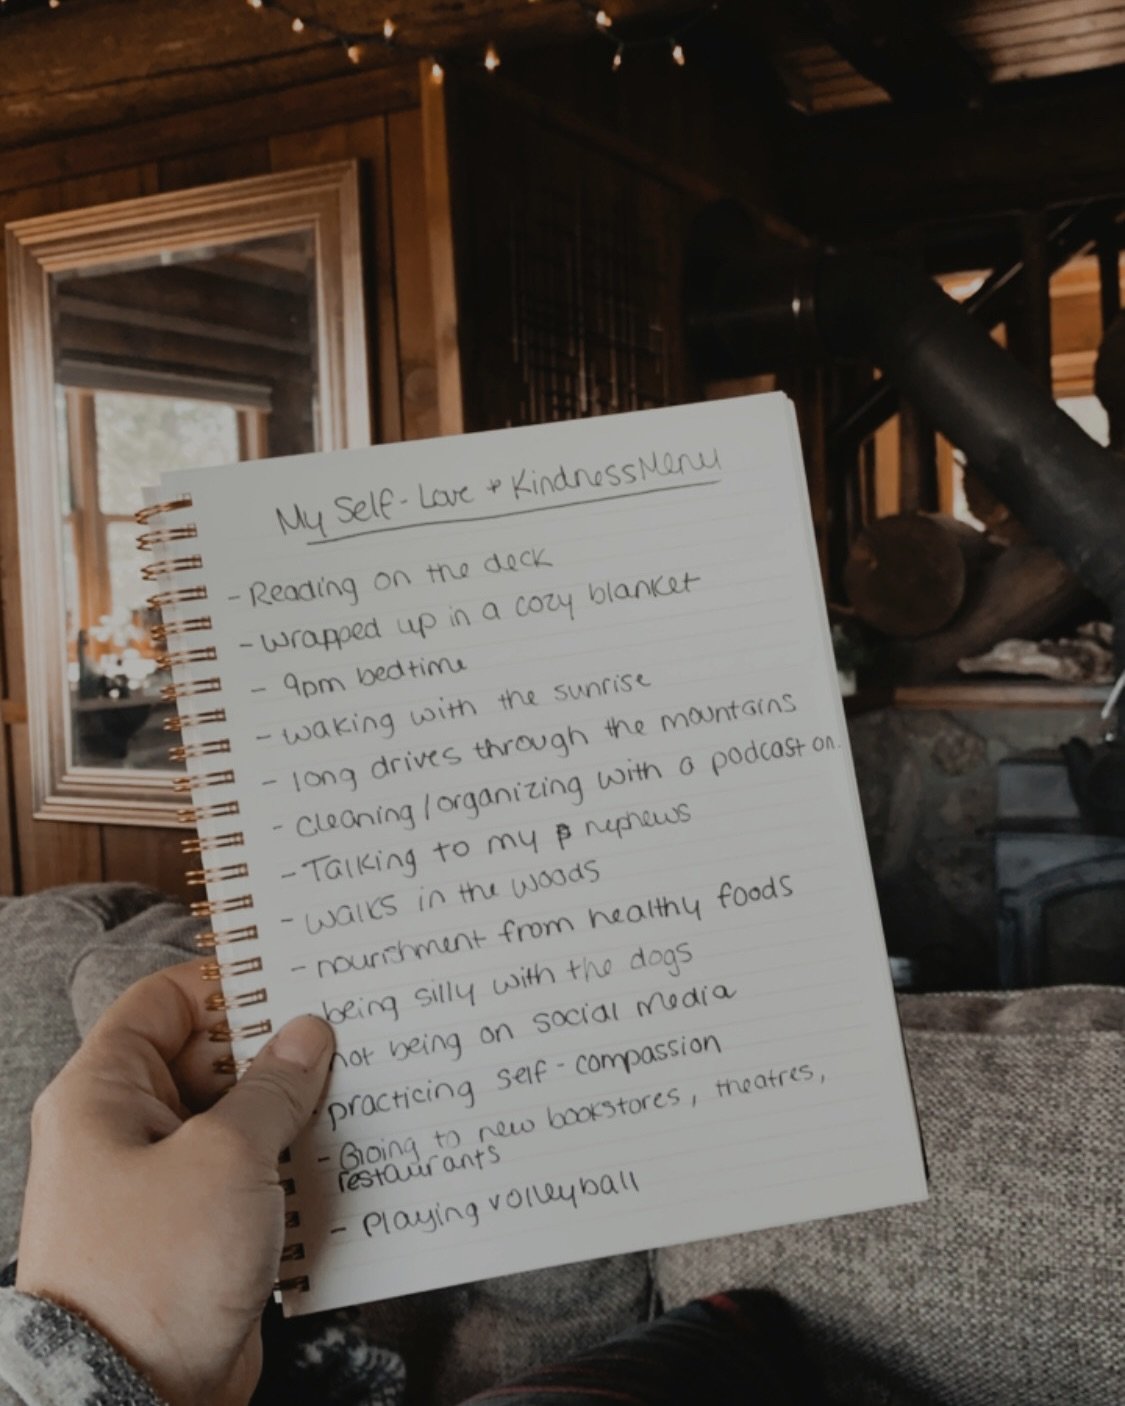 My Self-Love + Kindness Menu
- Reading on the deck
- wrapped up in a cozy blanket
- 9pm bedtime
- waking with the sunrise
- long drives through the mountains
- cleaning/organizing with a podcast on.
- Talking to my nephews
- walks in the woods
- nourishment from healthy foods
being silly with the dogs
not being on social media
practicing self-compassion
- Going to new bookstores, theatres,
restaurants
- Playing volleyball